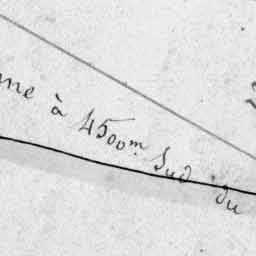 ne à 4500m Sud du